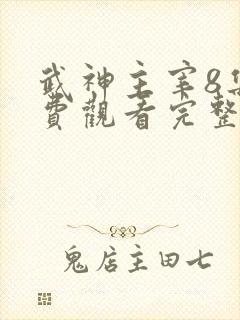 武神主宰8集
費觀看完整
鬼店主田七